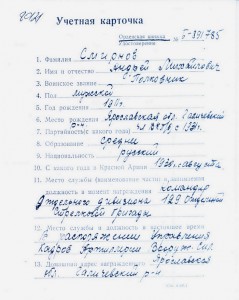 Учетная карточка
Орденская книжка № Г-391785
Удостоверение
1. Фамилия Смирнов
2. Имя и отчество Андрей Михайлович
3. Воинское звание Подполковник
4. Пол мужской
5. Год рождения
6. Место рождения Ярославская обл. Галичевский
р-н.
7. Партийность (с какого года) чл ВКП(б) с 1931г.
8. Образование среднее
9. Национальность русский
10. С какого года в Красной Армии 1928г. с августа
11. Место службы (наименование части) и
должность в момент награждения командир
Отдельного дивизиона 129 Отдельной
Стрелковой бригады
12. Место службы и должность в настоящее время
В распоряжении управления
Кадров Артиллерии Вооруж. Сил
13. Домашний адрес Ярославская
обл. Галичевский р-н